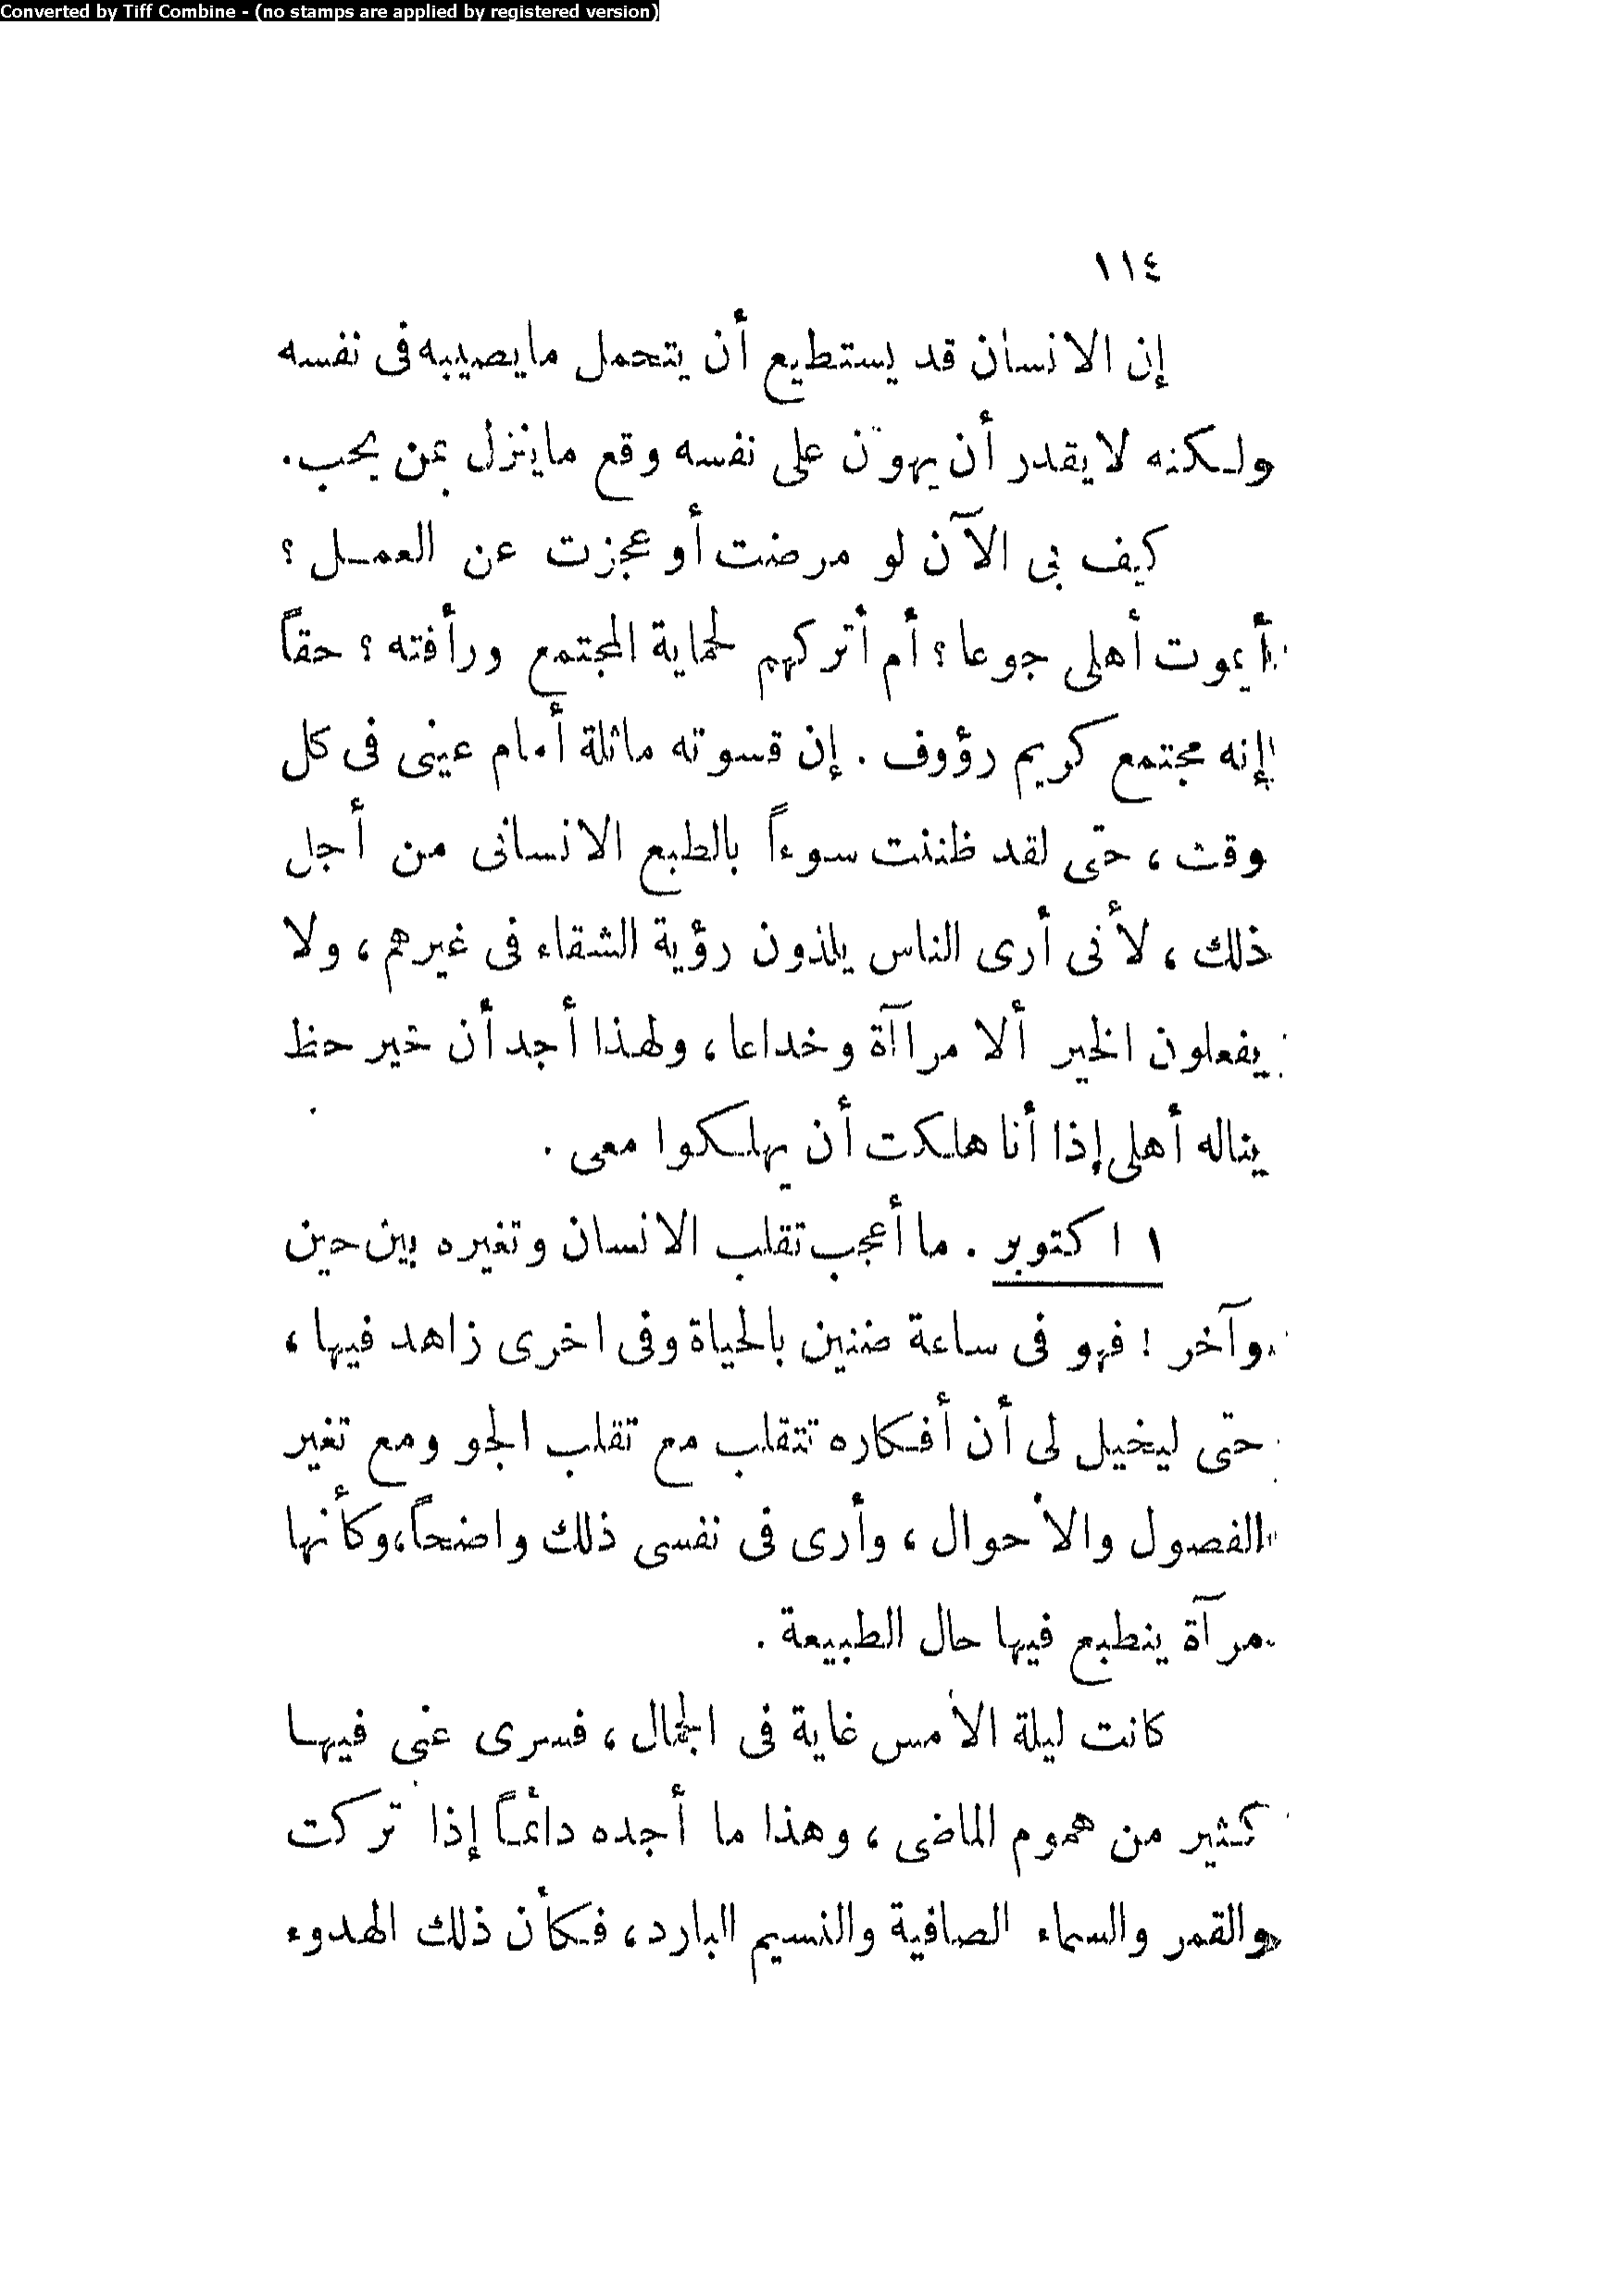 Converted by Tiff Combine - (no stamps are applied by registered version)
١١٤
إن الانسان قد يستطيع أن يتحمل مايصيبه فى نفسه
ولكنه لايقدر أن يهوّن على نفسه وقع ماينزل بمن يحب.
كيف بى الآن لو مرضت أو عجزت عن العمل ؟
أيموت أهلى جوعا؟ أم أتركهم لحماية المجتمع ورأفته ؟ حقاً
إنه مجتمع كريم رؤوف . إن قسوته ماثلة أمام عينى فى كل
وقت ، حتى لقد ظننت سوءاً بالطبع الانسانى من أجل
ذلك ، لأنى أرى الناس يلذون رؤية الشقاء فى غيرهم ، ولا
يفعلون الخير ألا مراآة وخداعا ، ولهذا أجد أن خير حظ
يناله أهلى إذا أنا هلكت أن يهلكوا معى .
١ اكتوبر . ما أعجب تقلب الانسان وتغيره بين حين
وآخر ! فهو فى ساعة ضنين بالحياة وفى اخرى زاهد فيها ،
حتى ليخيل لى أن أفكاره تتقلب مع تقلب الجو ومع تغير
الفصول والأحوال ، وأرى فى نفسى ذلك واضحاً، وكأنها
مرآة ينطبع فيها حال الطبيعة .
كانت ليلة الأمس غاية فى الجمال ، فسرى عنى فيها
كثير من هموم الماضى ، وهذا ما أجده دائماً إذا تركت
والقمر والسماء الصافية والنسيم البارد ، فكأن ذلك الهدوء